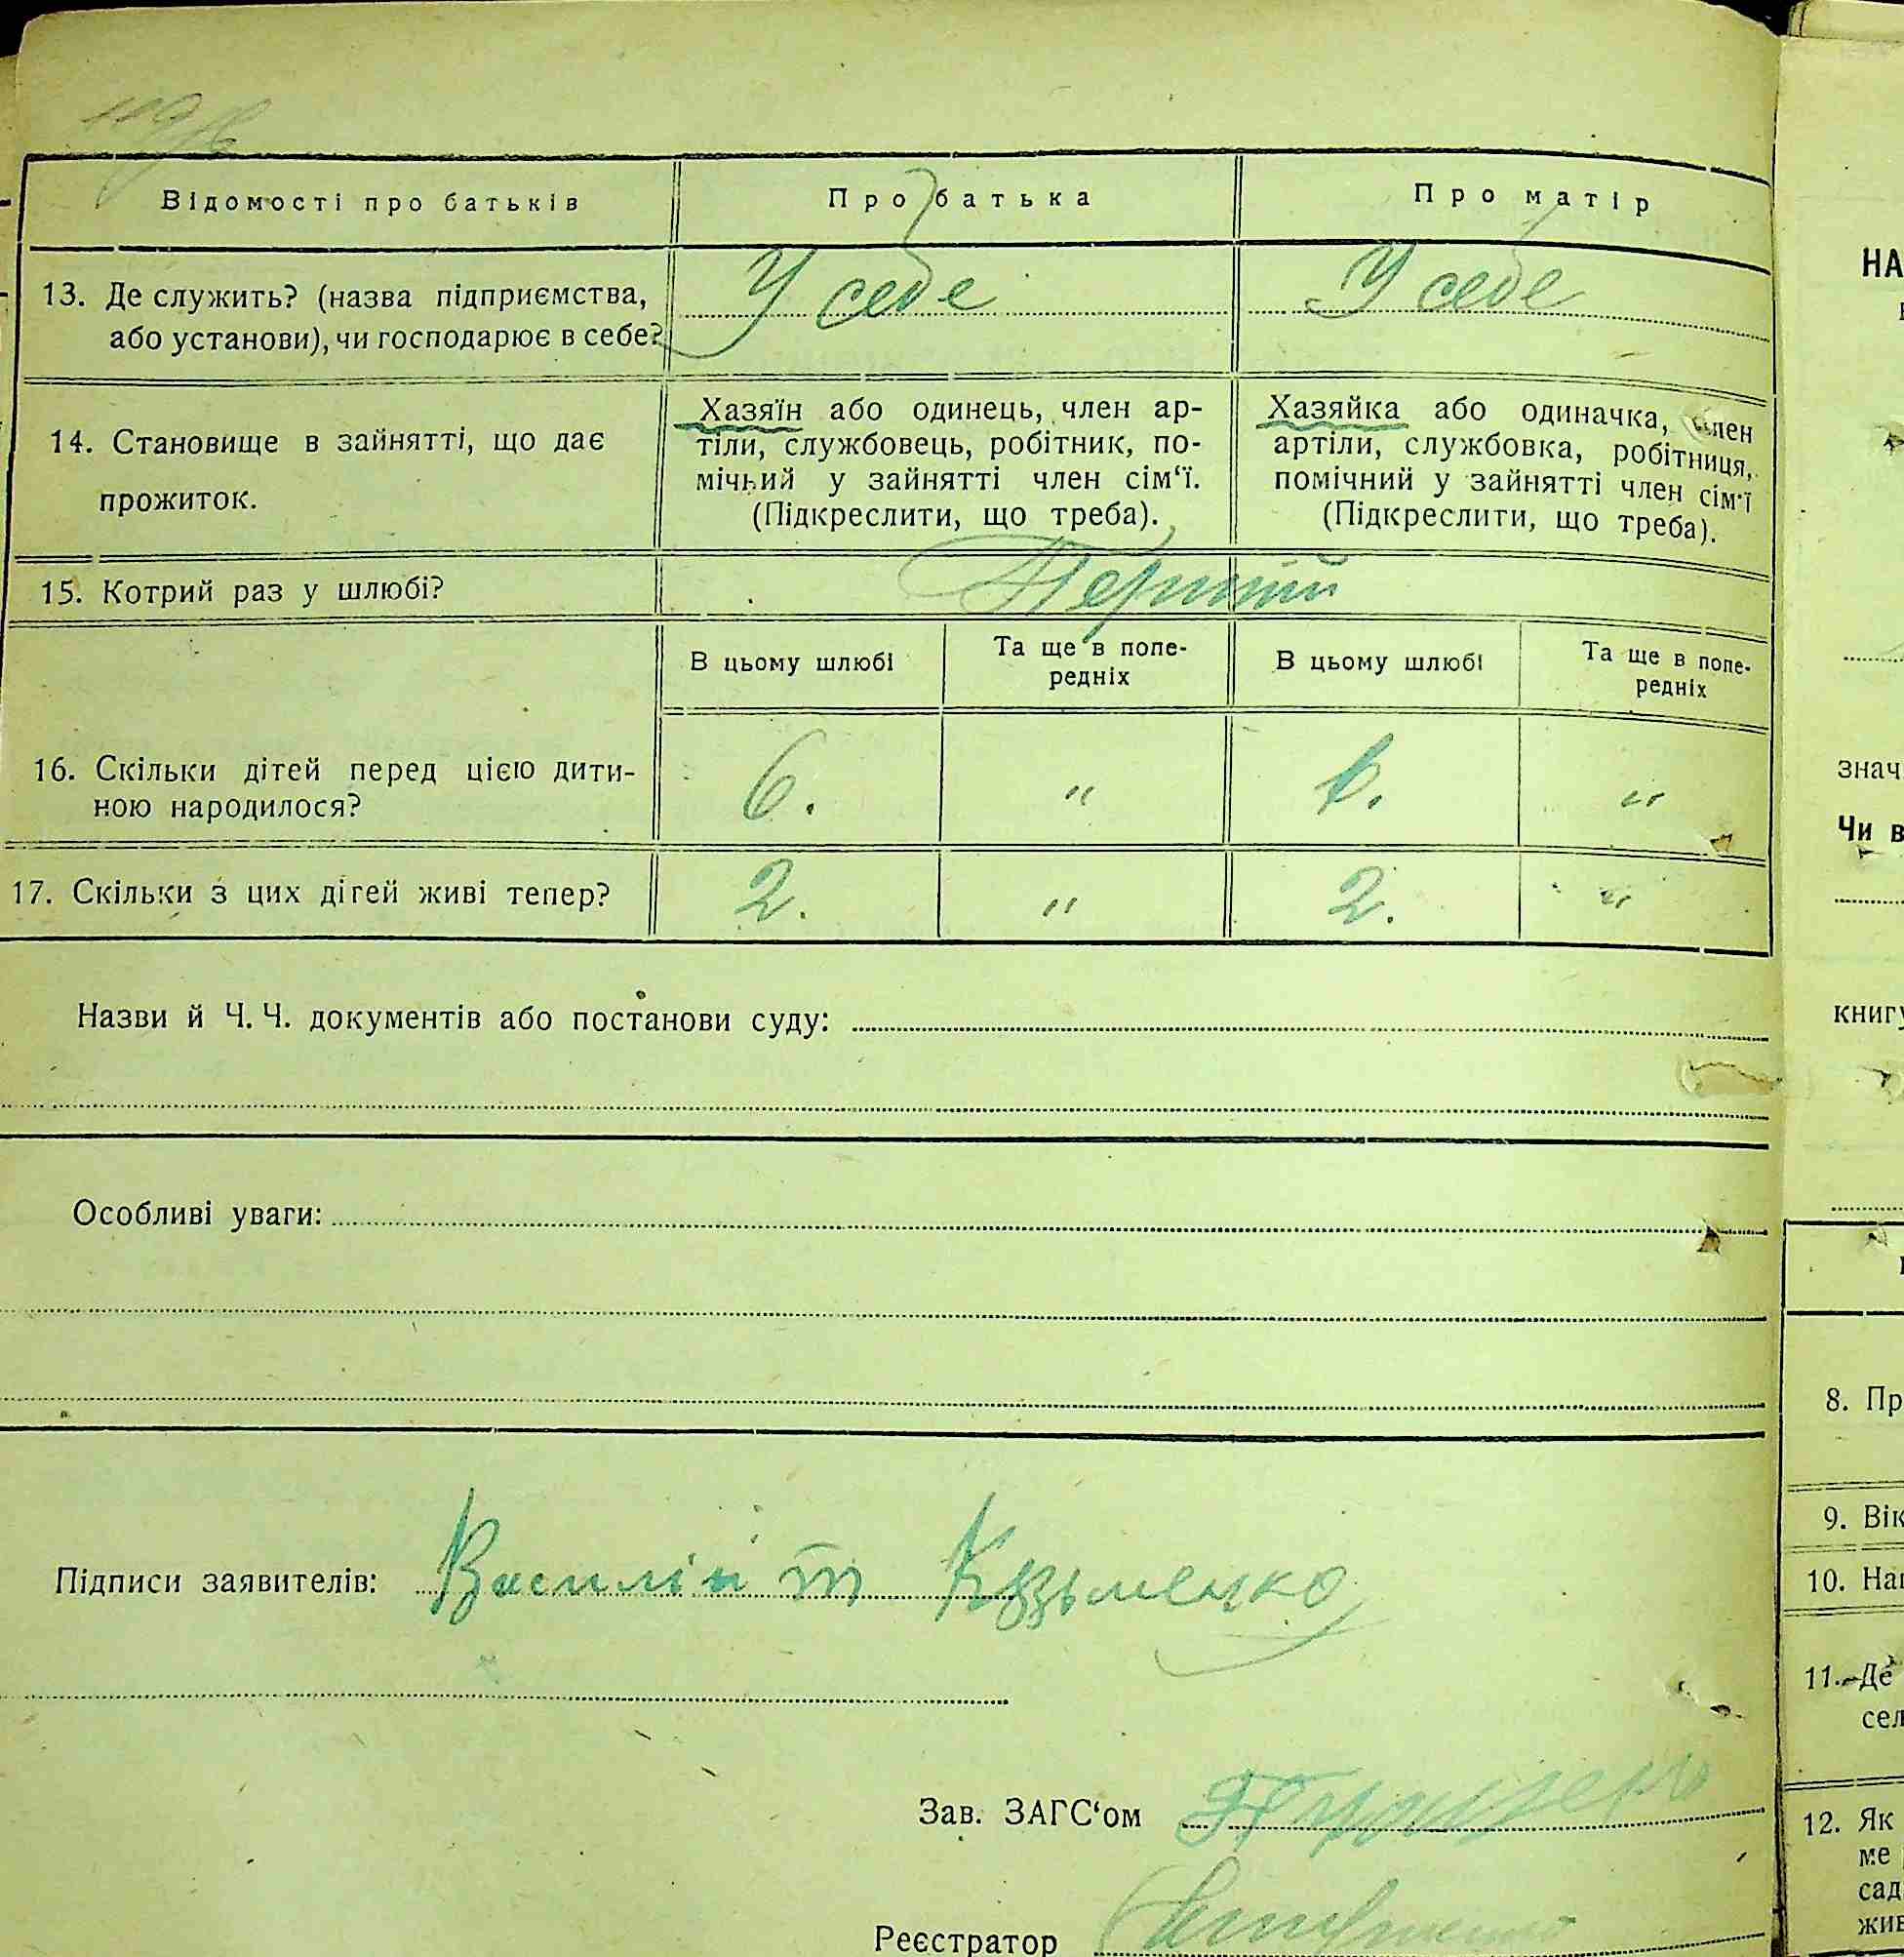 Відомості про батьків
Про батька
Про матір
13. Де служить? (назва підприємства,
або установи), чи господарює в себе?
У себе
У себе
14. Становище в зайнятті, що дає
прожиток.
Хазяїн або одинець, член ар-
тіли, службовець, робітник, по-
мічний у зайнятті член сім‘ї.
(Підкреслити, що треба).
Хазяйка або одиначка, член
артіли, службовка, робітниця,
помічний у зайнятті член сім‘ї
(Підкреслити, що треба).
15. Котрий раз у шлюбі?
Перший
В цьому шлюбі
Та ще в попе-
редніх
В цьому шлюбі
Та ще в попе-
редніх
16. Скільки дітей перед цією дити-
ною народилося?
6.
"
6.
"
17. Скільки з цих дітей живі тепер?
2.
"
2.
"
Назви й Ч. Ч. документів або постанови суду:
Особливі уваги:
Підписи заявителів: Василій т Кузьменко
Зав. ЗАГС‘ом
Реєстратор
НА
знач
Чи в
книгу
8. Пр
9. Вік
10. Нац
11. Де
сел
12. Як
ме
сад
жив